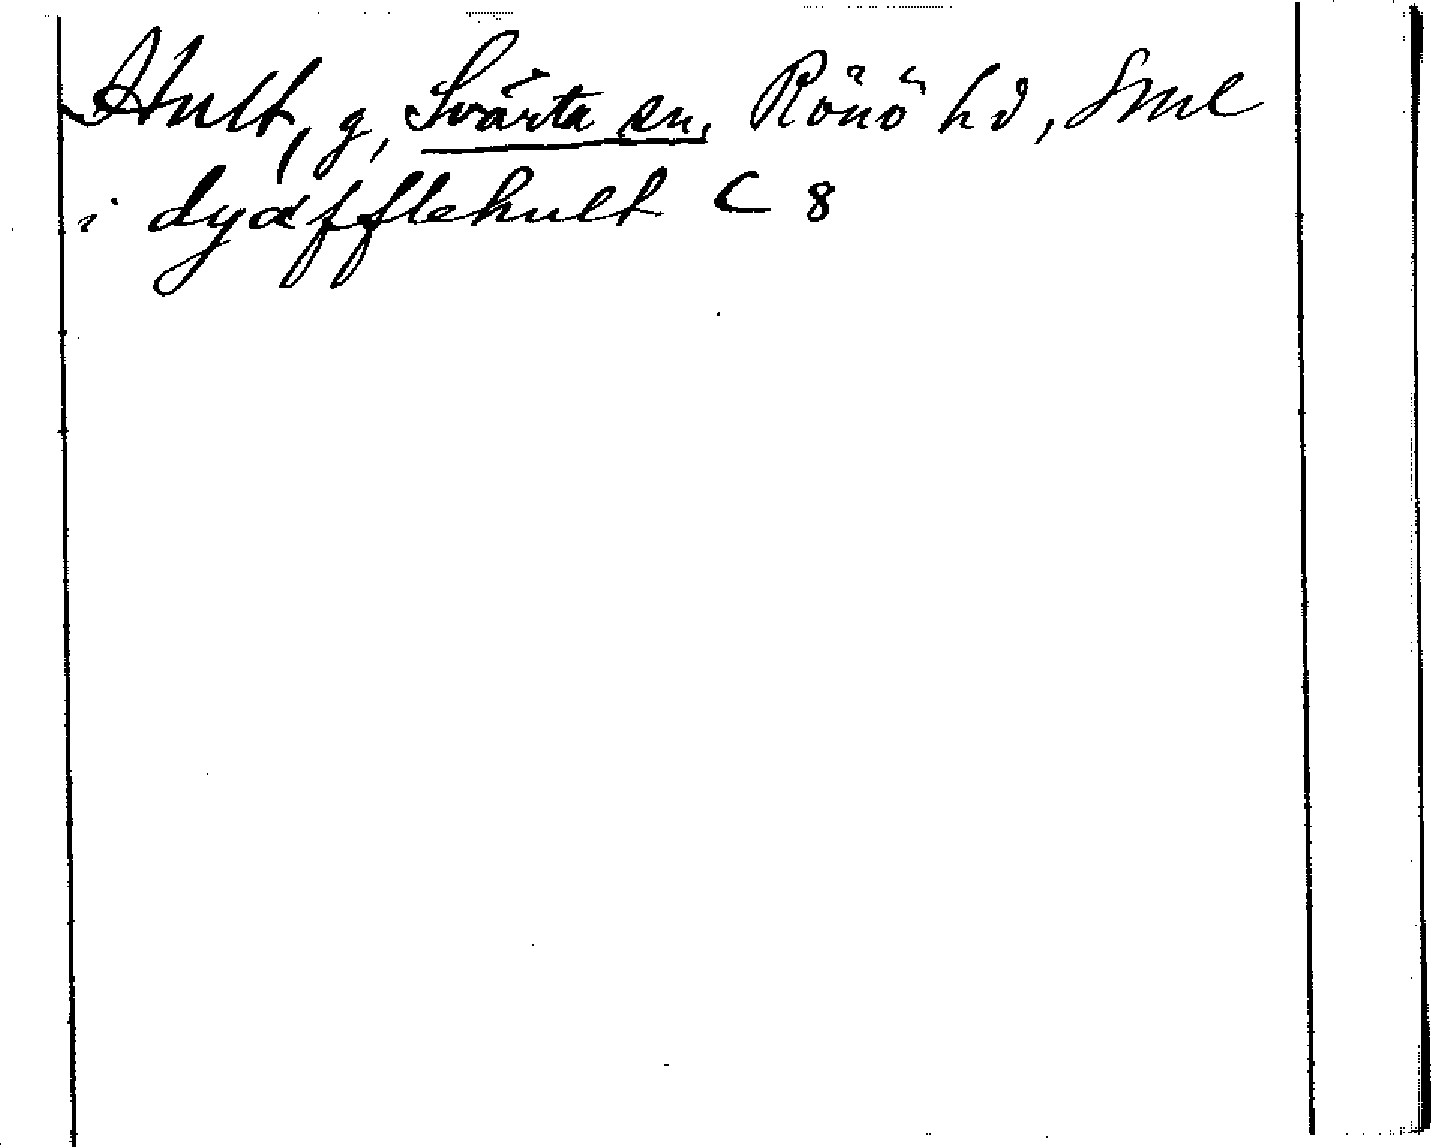 Hult, g, Svärta sn, Rönö hd, Sml
i dyæfflehult C 8